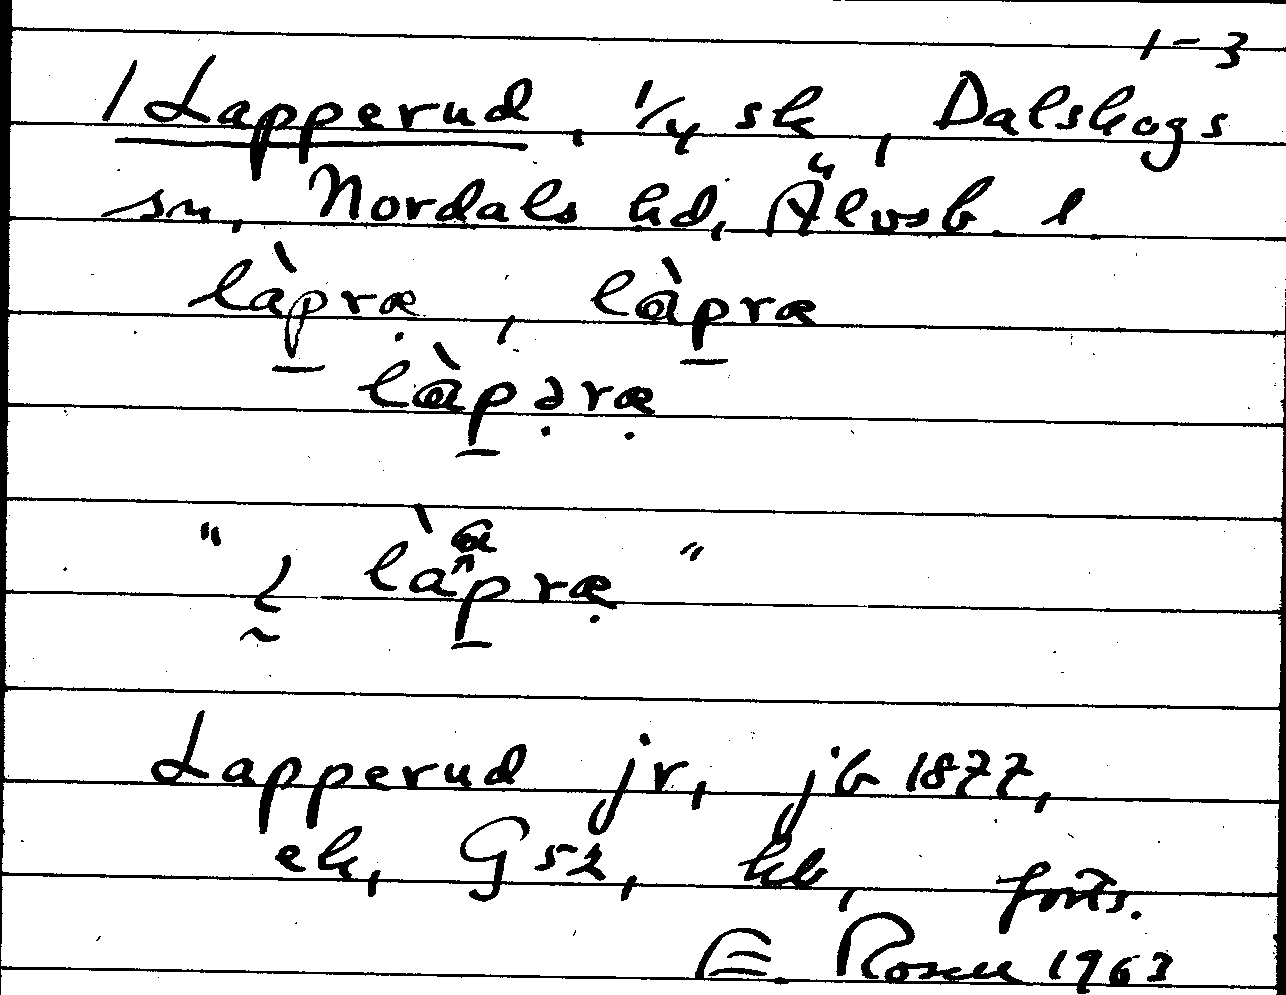 1-3
1 Lapperud, 1/4 sk, Dalskogs
sn, Nordals hd, Älvsb. l
làpræ̣, làpræ
làpə̣ræ̣
" làpræ̣ "
Lapperud jr, jb 1877,
ek, G52, kb, forts.
E. Rosell 1963